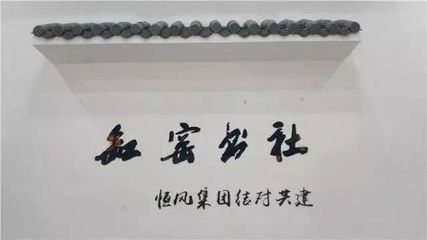 缸窑书社
恒风集团结对共建